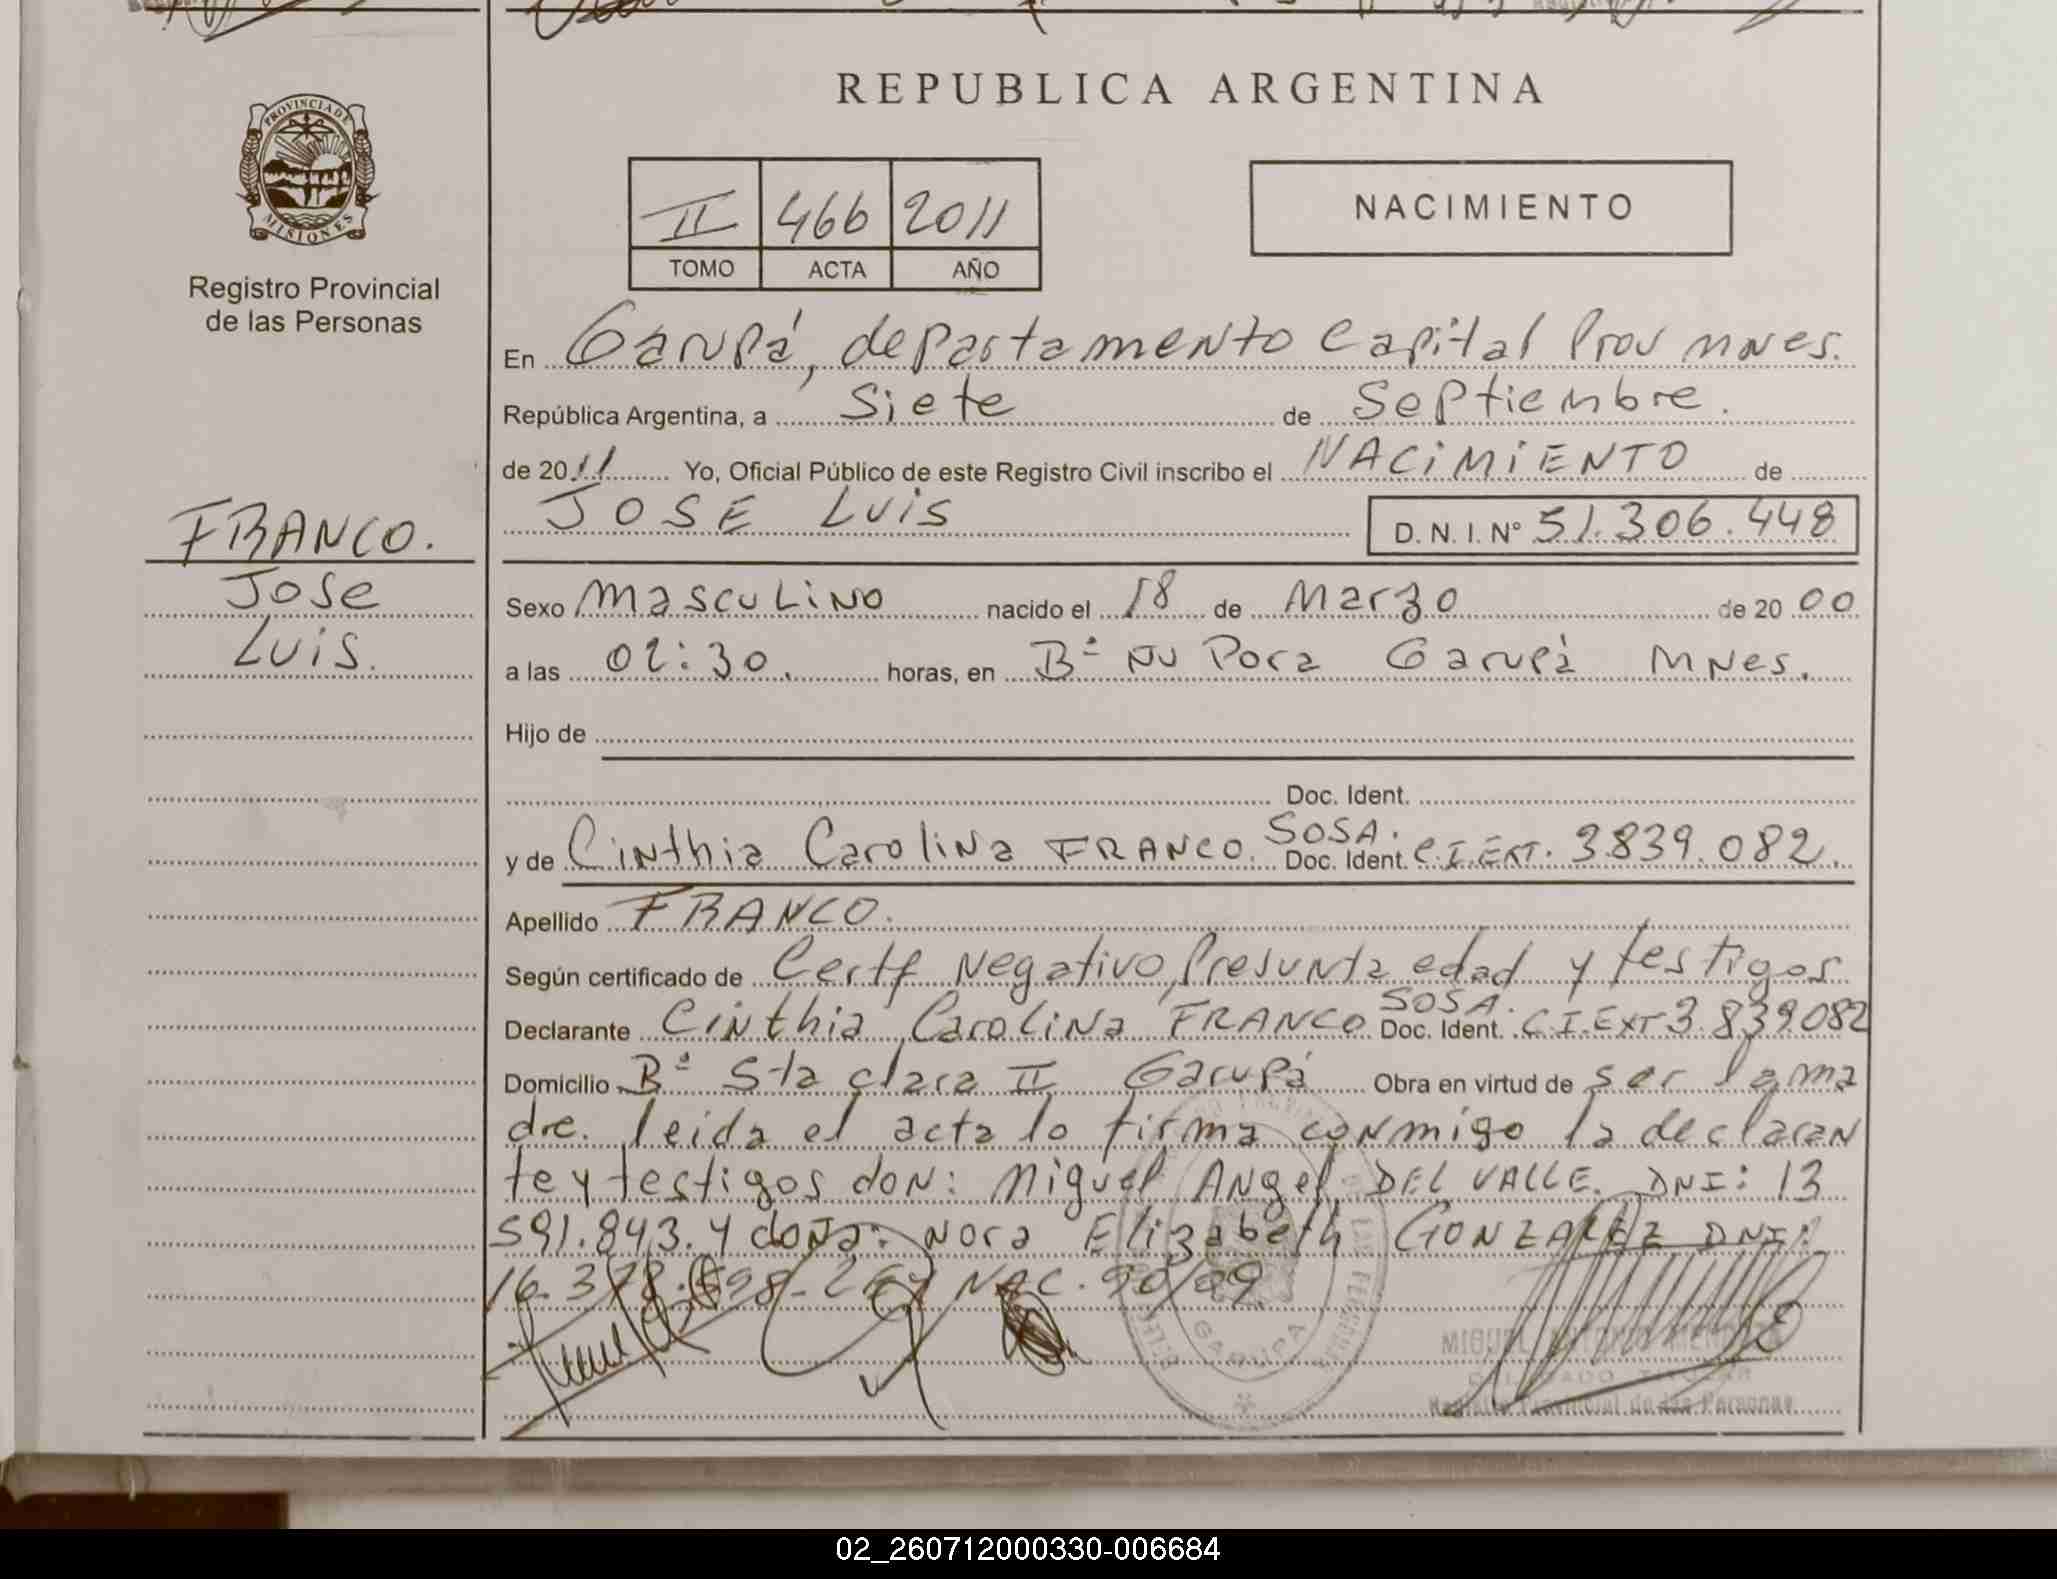 REPUBLICA ARGENTINA
PROVINCIA DE
MISIONES
Registro Provincial
de las Personas
II 466 2011
TOMO ACTA AÑO
NACIMIENTO
En Garupá, departamento Capital Prov MNES.
República Argentina, a Siete de Septiembre.
de 2011 Yo, Oficial Público de este Registro Civil inscribo el NACIMIENTO de
JOSE LUIS D. N. I. Nº 51.306.448
FRANCO.
Jose
Luis.
Sexo Masculino nacido el 18 de Marzo de 20 00
a las 02:30. horas, en Bº ÑU Pora Garupá MNes.
Hijo de
Doc. Ident.
y de Cinthia Carolina FRANCO SOSA. Doc. Ident. C.I.EXT. 3839.082.
Apellido FRANCO.
Según certificado de Certf Negativo, Presunta edad y testigos
Declarante Cinthia Carolina FRANCO SOSA. Doc. Ident. C.I.EXT 3.839.082
Domicilio Bº Sta clara II Garupá Obra en virtud de ser la ma
dre. leida el acta lo firma conmigo la declaran
te y testigos don: Miguel Angel DEL VALLE. DNI: 13
591.843. y doña: Nora Elizabeth GONZALEZ DNI:
16.378. NAC. 90/09
GARUPA
MIGUEL ANTONIO
DELEGADO TITULAR
Registro Provincial de las Personas
02_260712000330-006684